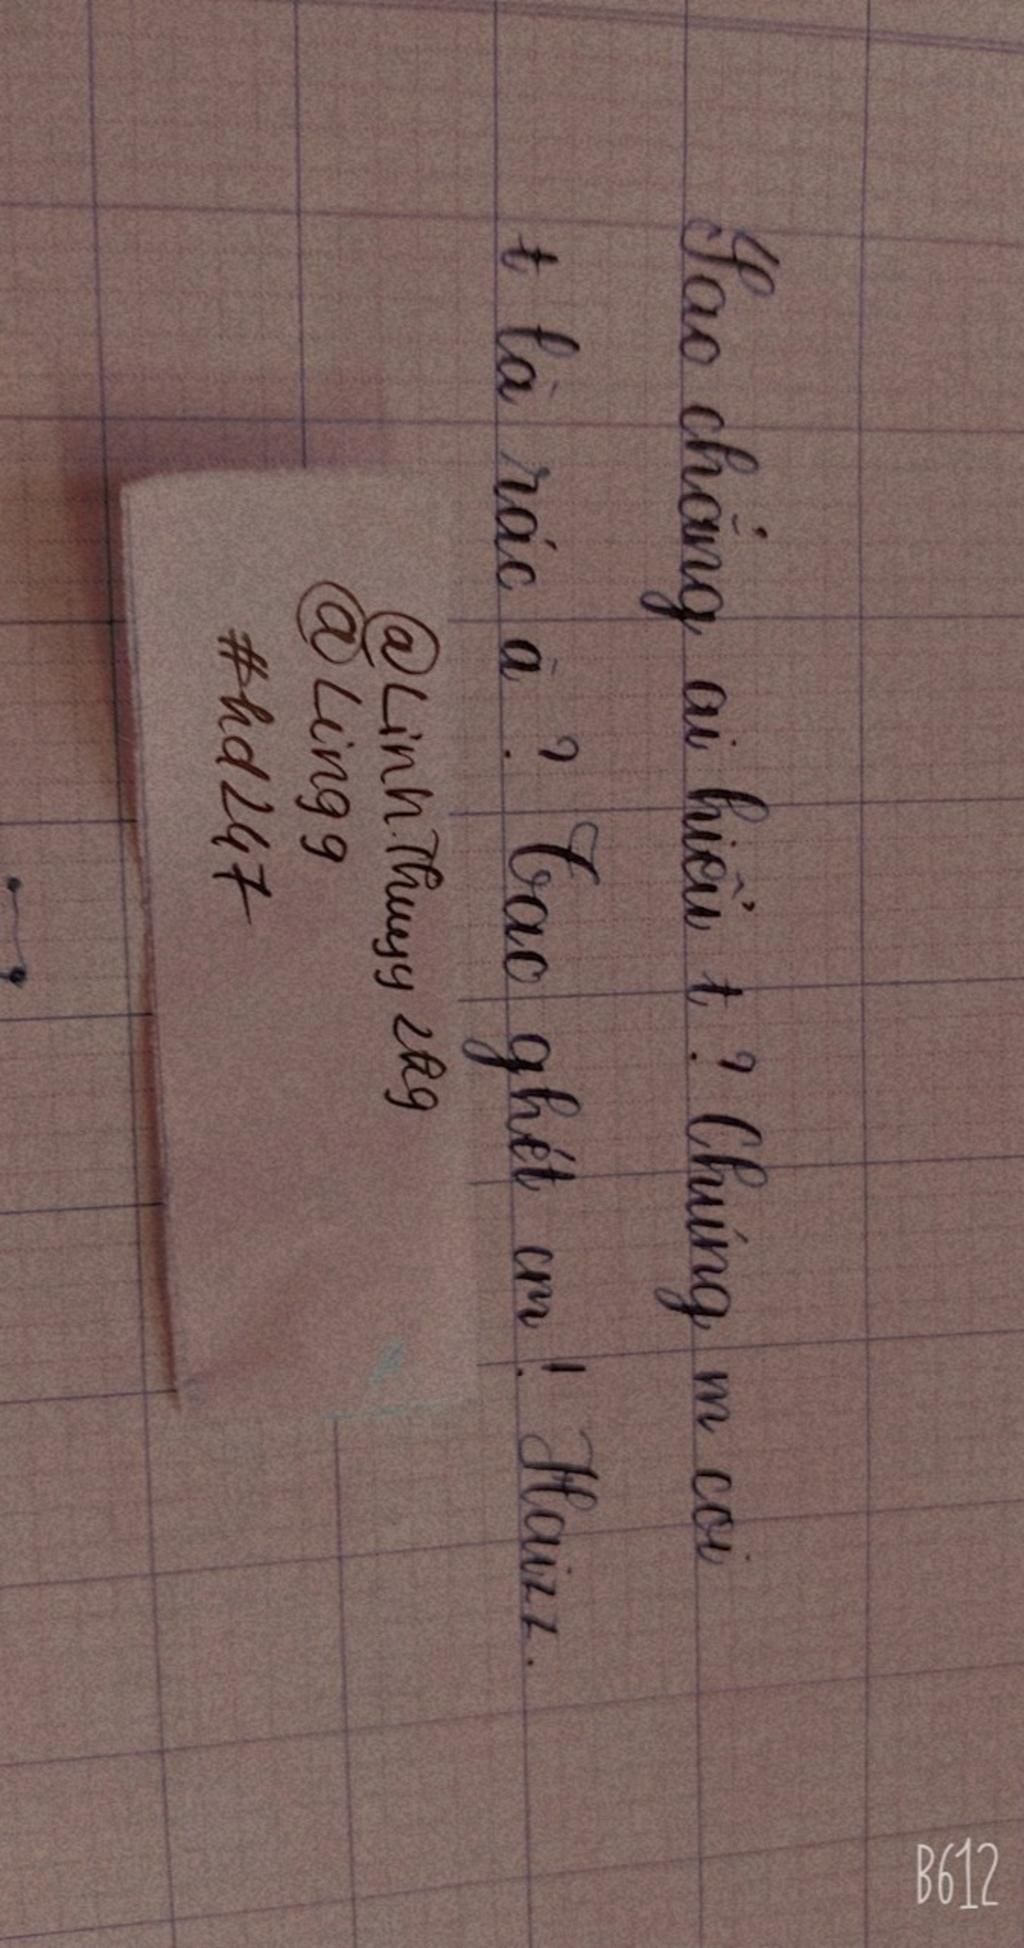 Sao chẳng ai hiểu t? Chúng m coi
t là rác à? Tao ghét cm! Haizz.
@Linh.Thuyy2kg
@Lingg
#hd247
B612